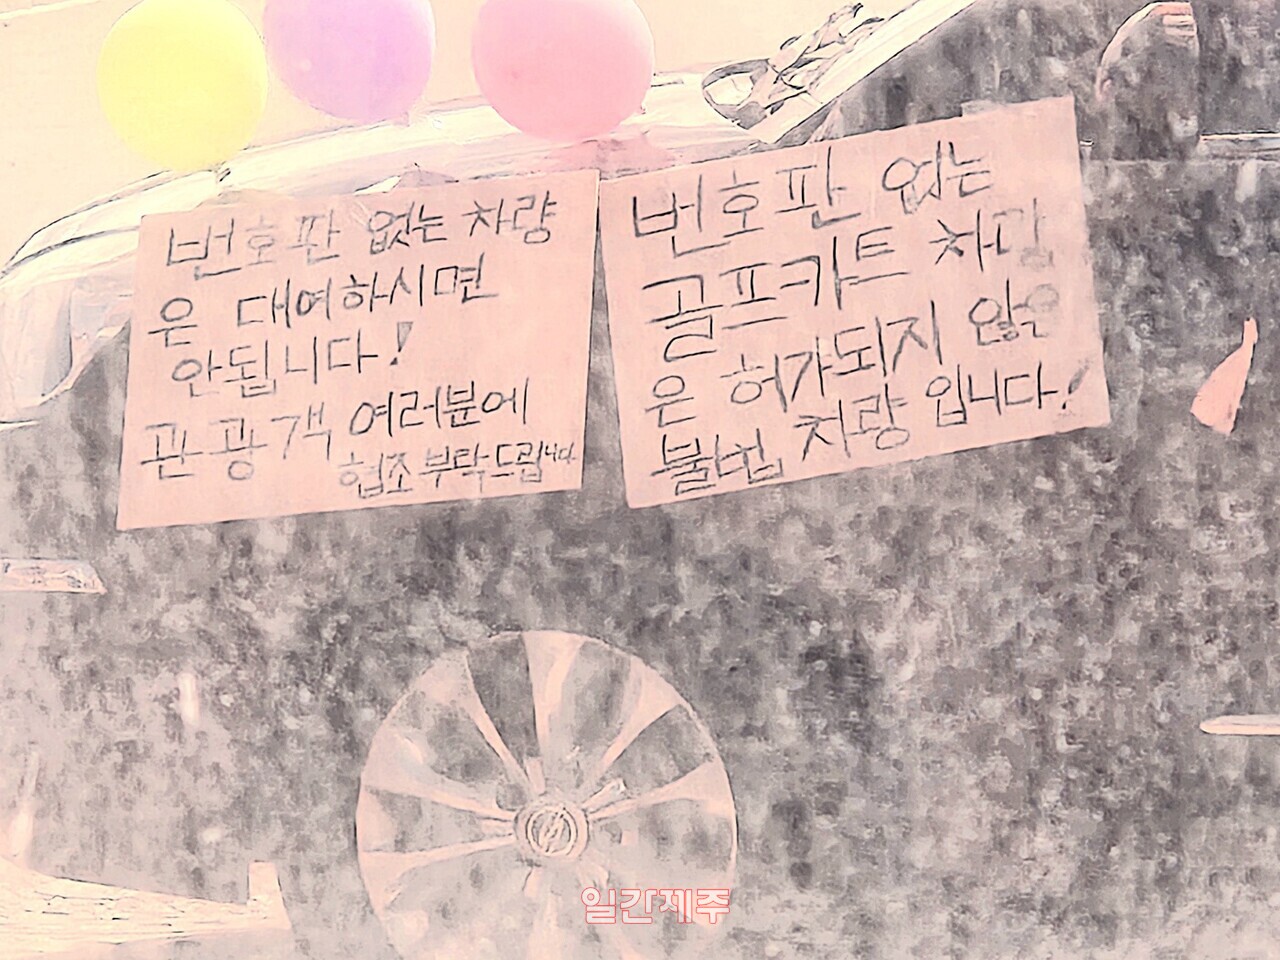 번호판 없는 차량
은 대여하시면
안됩니다!
관광객 여러분에
협조 부탁드립니다
번호판 없는
골프카트 차량
은 허가되지 않은
불법 차량 입니다!
일간제주